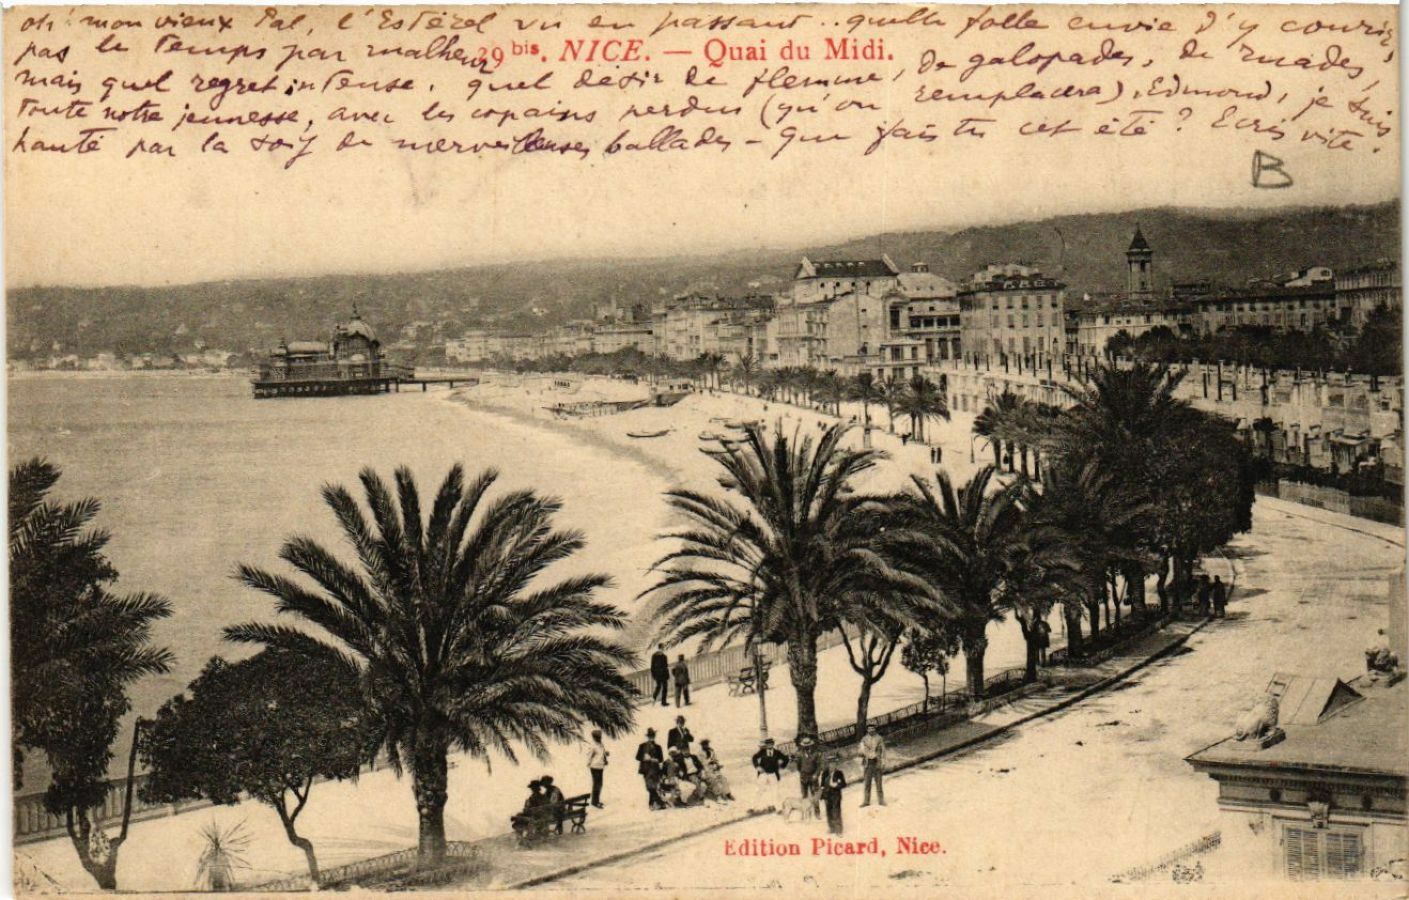 oh! mon vieux Pal, l'Estérel vu en passant.. quelle folle envie d'y courir,
pas le temps par malheur
39 bis. NICE. — Quai du Midi.
mais quel regret intense, quel désir de flemme, de galopades, de ruades,
toute notre jeunesse, avec les copains perdus (qu'on remplacera), Edmond, je suis
hanté par la soif de merveilleuses ballades - que fais tu cet été ? Ecris vite.
B
Edition Picard, Nice.